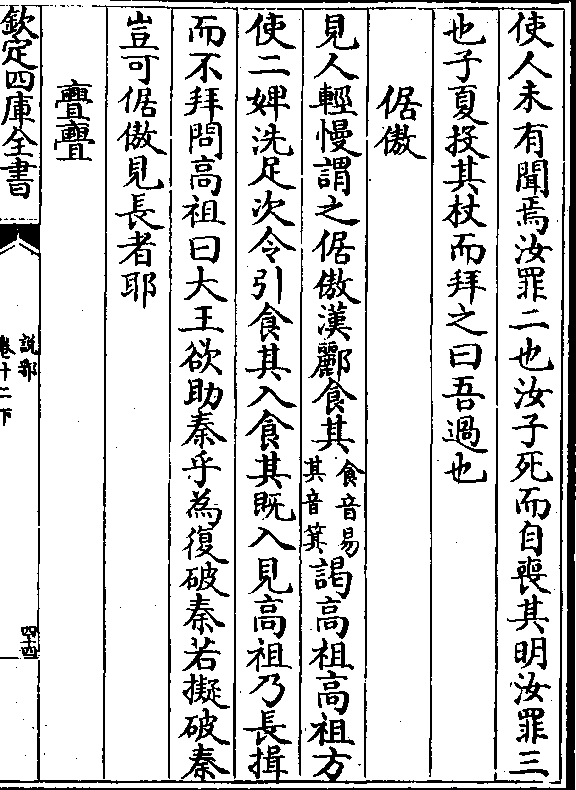 使人未有聞焉汝罪二也汝子死而自喪其明汝罪三
也子夏投其杖而拜之曰吾過也
倨傲
見人輕慢謂之倨傲漢酈食其食音易其音箕謁高祖高祖方
使二婢洗足次令引食其入食其既入見高祖乃長揖
而不拜問高祖曰大王欲助秦乎為復破秦若擬破秦
豈可倨傲見長者耶
亹亹
欽定四庫全書
說郛
卷十二下
四十四